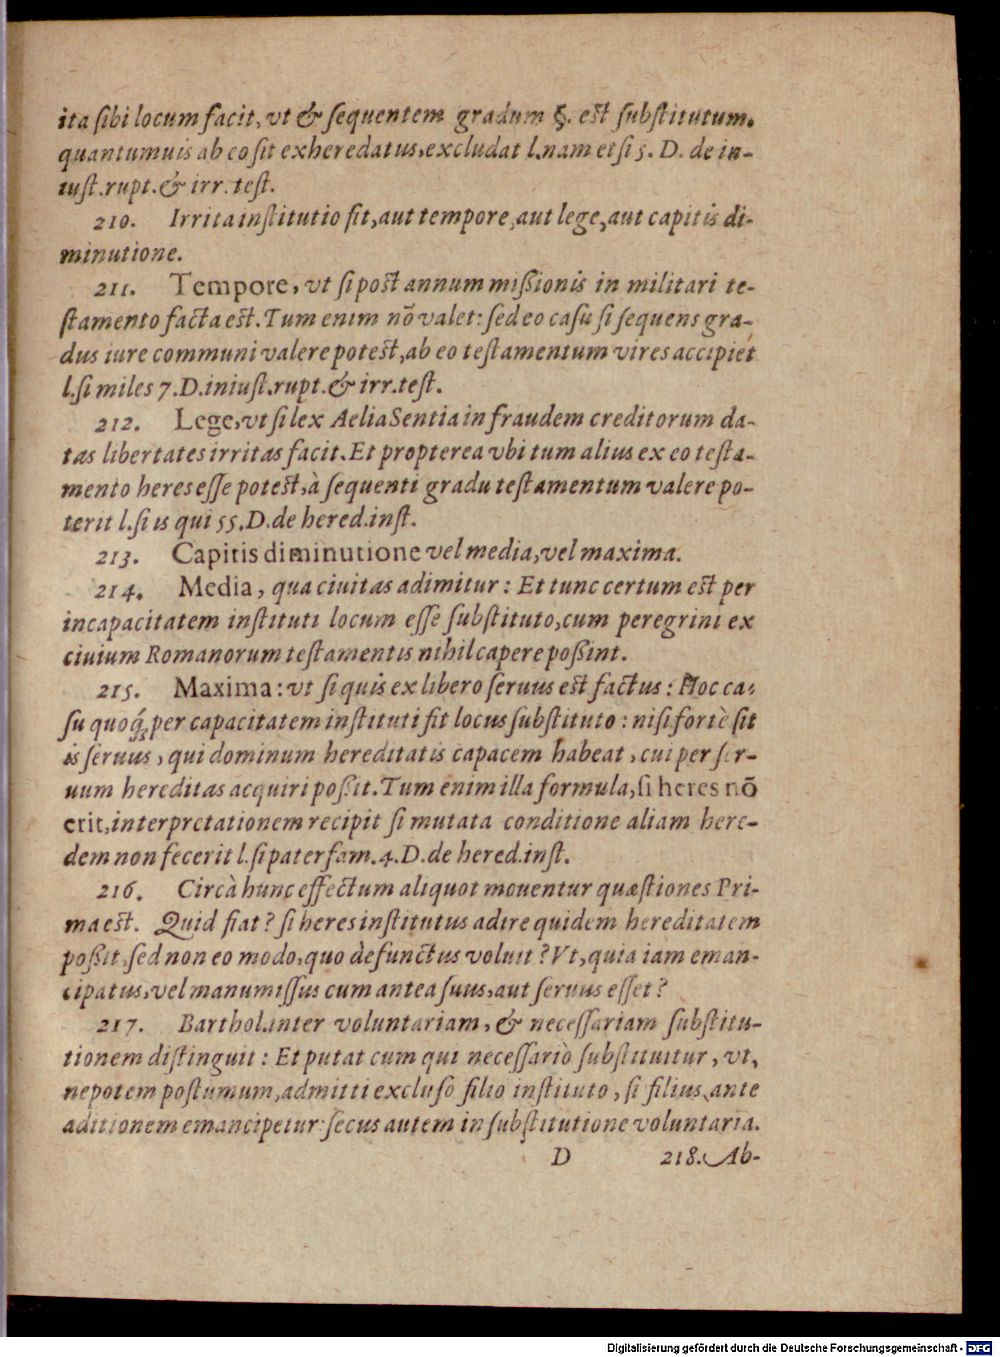 ita ſibi locum facit, vt & ſequentem gradum §. eſt ſubſtitutum,
quantumuis ab eo ſit exheredatus, excludat l. nam et ſi 5. D. de in-
iuſt. rupt. & irr. teſt.
210. Irrita inſtitutio fit, aut tempore, aut lege, aut capitis di-
minutione.
211. Tempore, vt ſi poſt annum miſſionis in militari te-
ſtamento facta eſt. Tum enim nō valet: ſed eo caſu ſi ſequens gra-
dus iure communi valere poteſt, ab eo teſtamentum vires accipiet
l. ſi miles 7. D. iniuſt. rupt. & irr. teſt.
212. Lege, vt ſi lex Aelia Sentia in fraudem creditorum da-
tas libertates irritas facit. Et propterea vbi tum alius ex eo teſta-
mento heres eſſe poteſt, à ſequenti gradu teſtamentum valere po-
terit l. ſi is qui 55. D. de hered. inſt.
213. Capitis diminutione vel media, vel maxima.
214. Media, qua ciuitas adimitur: Et tunc certum eſt per
incapacitatem inſtituti locum eſſe ſubſtituto, cum peregrini ex
ciuium Romanorum teſtamentis nihil capere poſſint.
215. Maxima: vt ſi quis ex libero ſeruus eſt factus: Hoc ca-
ſu quoq́; per capacitatem inſtituti fit locus ſubſtituto: niſi fortè ſit
is ſeruus, qui dominum hereditatis capacem habeat, cui per ſer-
uum hereditas acquiri poſſit. Tum enim illa formula, ſi heres nō
erit, interpretationem recipit ſi mutata conditione aliam here-
dem non fecerit l. ſi paterfam. 4. D. de hered. inſt.
216. Circà hunc effectum aliquot mouentur quæſtiones Pri-
ma eſt. Quid fiat? ſi heres inſtitutus adire quidem hereditatem
poſſit, ſed non eo modo, quo defunctus voluit? Vt, quia iam eman-
cipatus, vel manumiſſus cum antea ſuus, aut ſeruus eſſet?
217. Barthol. inter voluntariam, & neceſſariam ſubſtitu-
tionem diſtinguit: Et putat cum qui neceſſariò ſubſtituitur, vt,
nepotem poſtumum, admitti excluſo filio inſtituto, ſi filius ante
aditionem emancipetur: ſecus autem in ſubſtitutione voluntaria.
D 218. Ab-
Digitalisierung gefördert durch die Deutsche Forschungsgemeinschaft - DFG